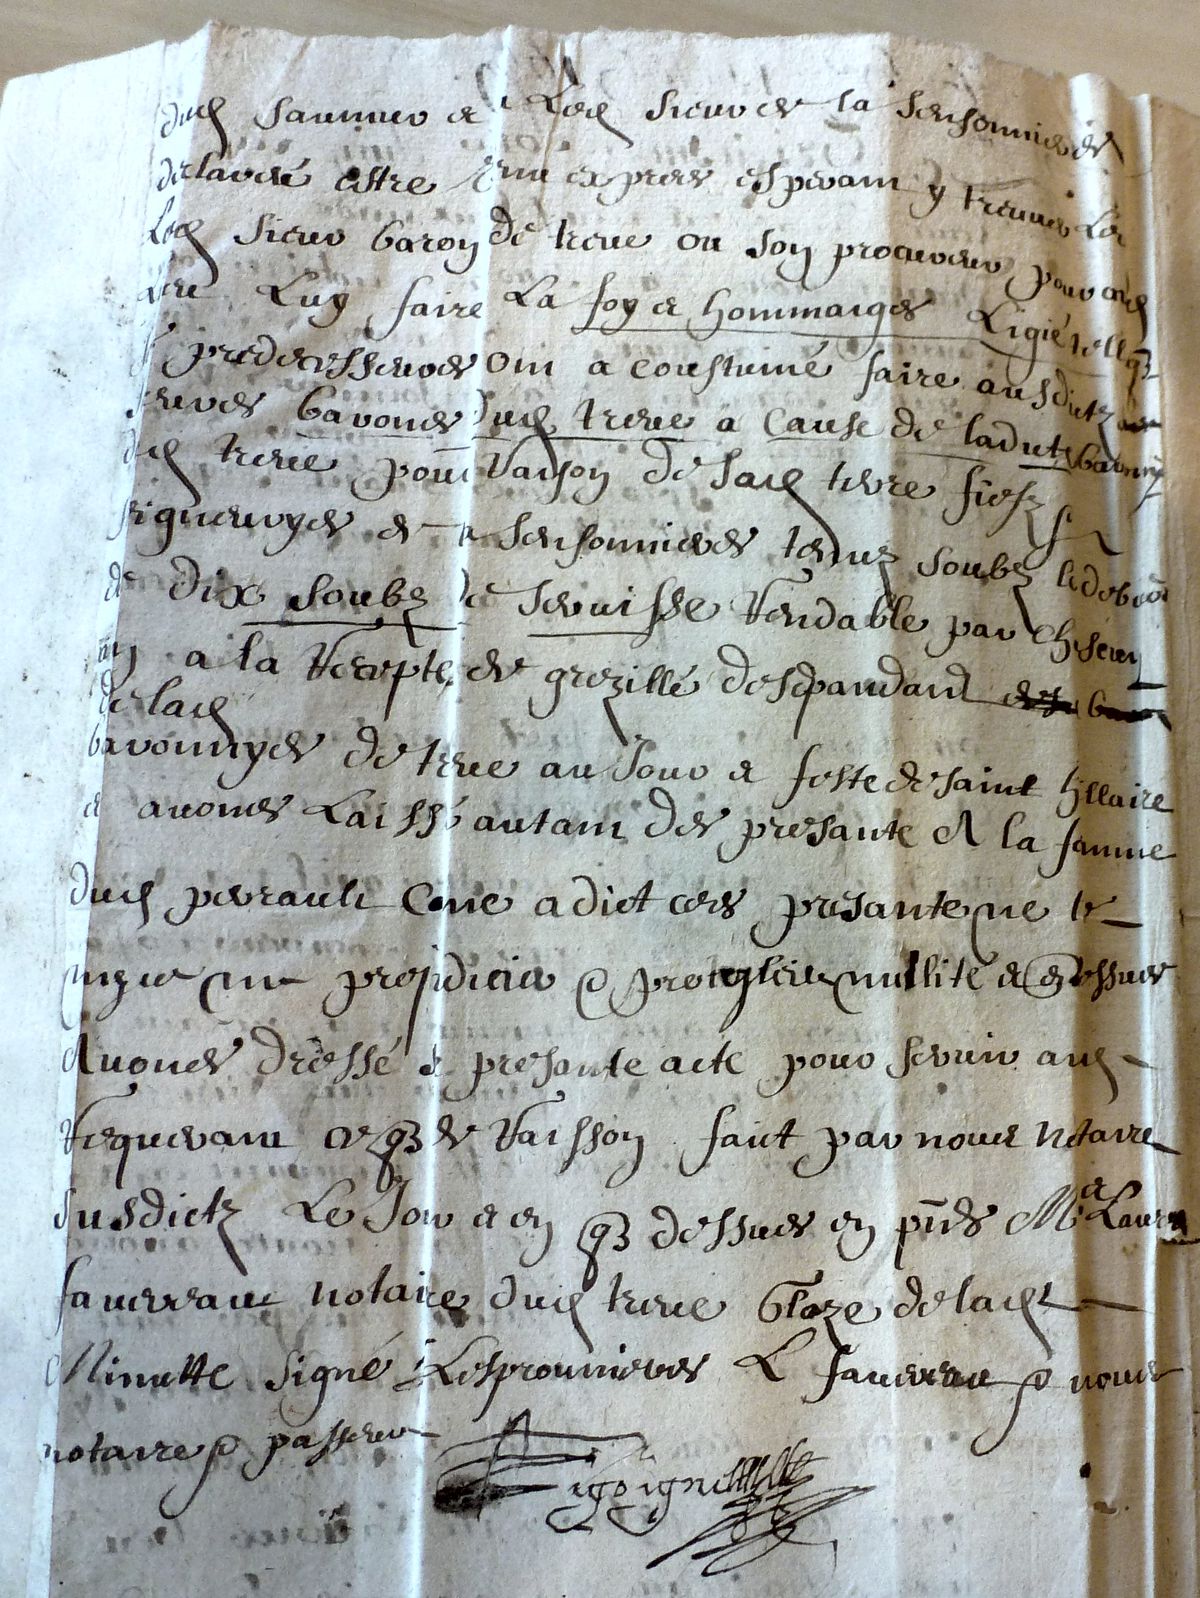 dud saumur & Led sieur de la sensonniere
declaré estre venu expres esperant y trouver
Led sieur baron de treve ou son procureur pour
Luy faire La foy & hommaiges Ligié telle q
predecesseurs ont a coustumé faire ausdictz
barons dud treve a cause de ladicte baronny
dud treve pour raison de sad terre fiefz
seigneuryes de la sensonniere tenuz soubz le debvoir
de dix soubz de servisse rendable par chascun
an a la recepte de grezillé despandand
de lad
baronnye de treve au Jour & feste de saint hillaire
& avons Laissé autant des presante A la femme
dud perrault Cone a dict ces presante ne
prejudicier & protester nullité &
Avons dressé presante acte pour servir aud
requerant de raisson fait par nous notaire
susdictz Le Jour & en q dessus en pnce Me Laurent
faverau notaire dud treve & de lad
Minutte signé Lesprounieres L faverau & nous
notaire passeur